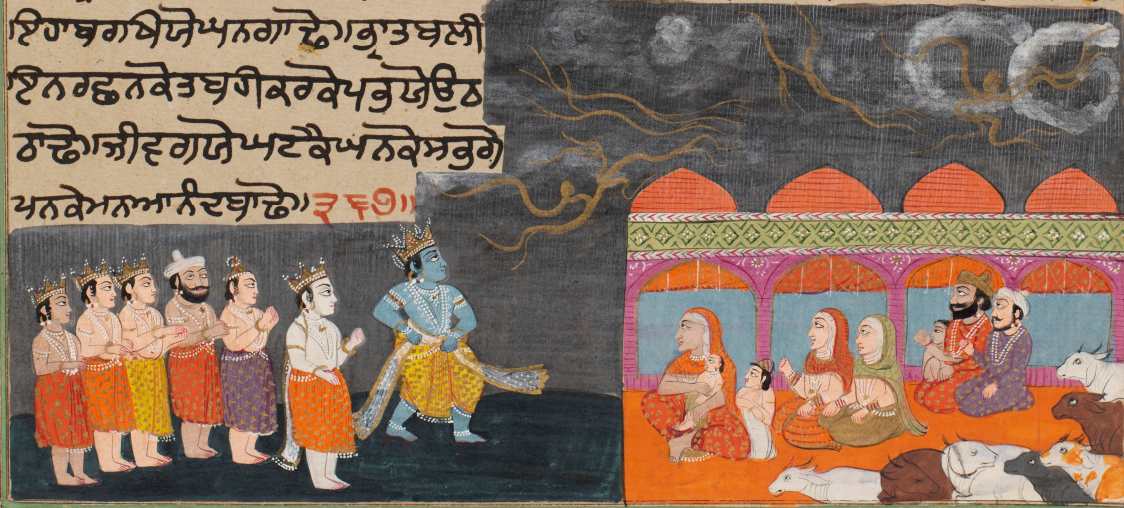 ਇਹਾਬਰਖਿਯੋਘਨਗਾਢੋ॥ਭ੍ਰਾਤਬਲੀ
ਇਨਰਛਨਕੋਤਬਹੀਕਰਕੋਪਭਯੋਉਠ
ਠਾਢੋ॥ਜੀਵਗਯੋਘਟਕੈਘਨਕੋਸਭਗੋ
ਪਨਕੇਮਨਆਨੰਦਬਾਢੋ॥੩੬੭॥